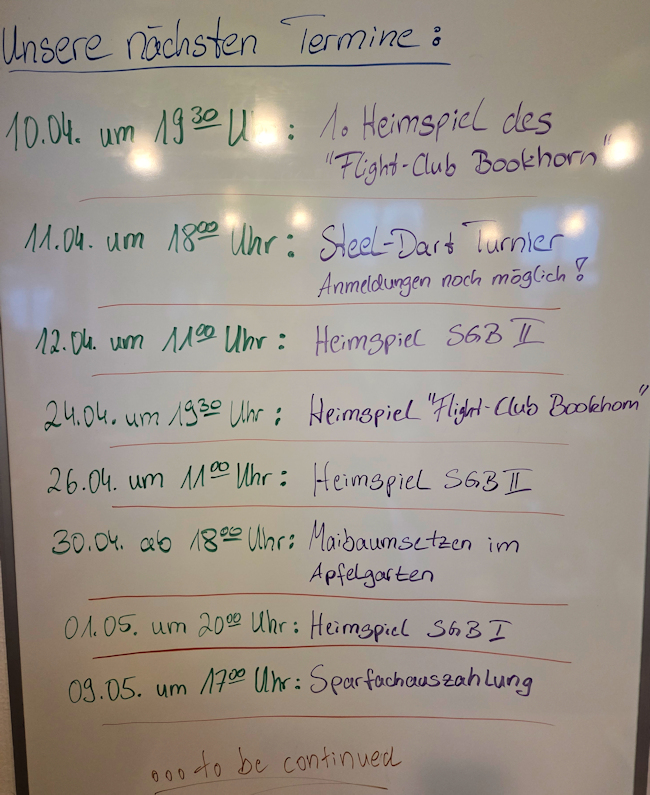 Unsere nächsten Termine:
10.04. um 19³⁰ Uhr: 1. Heimspiel des
"Flight-Club Bookhorn"
11.04. um 18⁰⁰ Uhr: Steel-Dart Turnier
Anmeldungen noch möglich!
12.04. um 11⁰⁰ Uhr: Heimspiel SGB II
24.04. um 19³⁰ Uhr: Heimspiel "Flight-Club Bookhorn"
26.04. um 11⁰⁰ Uhr: Heimspiel SGB II
30.04. ab 18⁰⁰ Uhr: Maibaumsetzen im
Apfelgarten
01.05. um 20⁰⁰ Uhr: Heimspiel SGB I
09.05. um 17⁰⁰ Uhr: Sparfachauszahlung
...to be continued